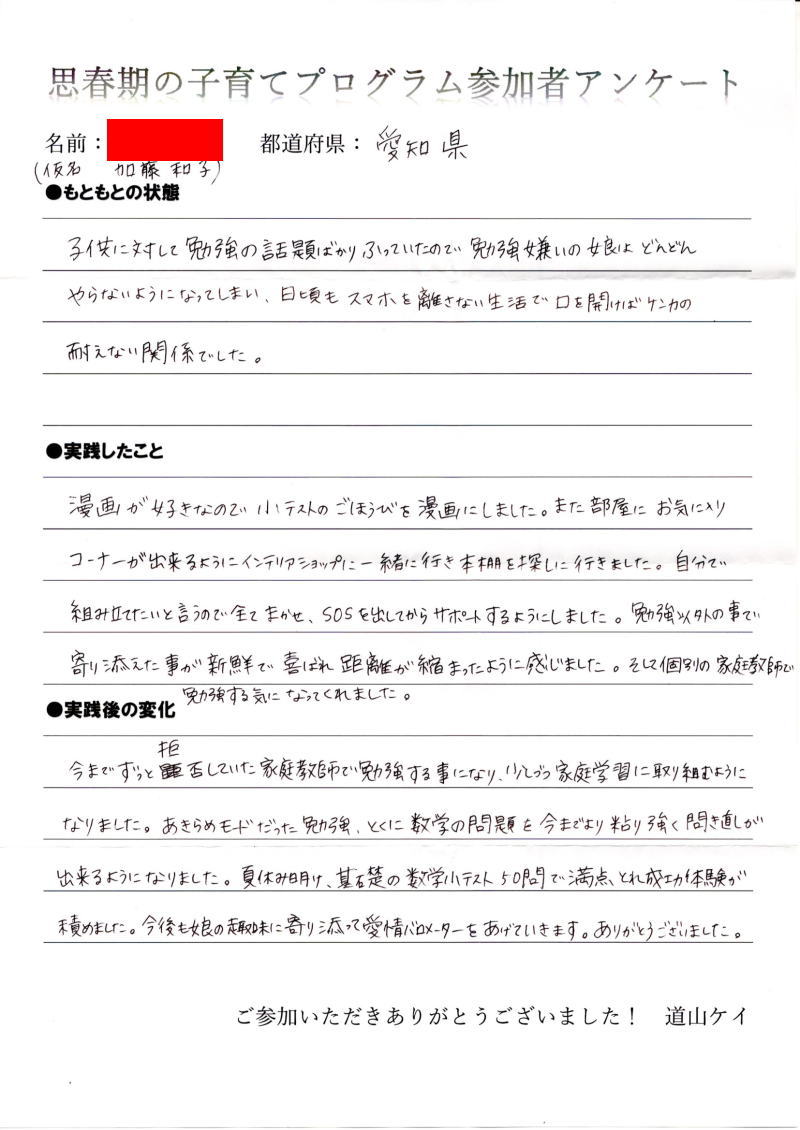 思春期の子育てプログラム参加者アンケート
名前： 都道府県： 愛知県
(仮名 加藤 和子)
●もともとの状態
子供に対して勉強の話題ばかりふっていたので勉強嫌いの娘はどんどん
やらないようになってしまい、日頃もスマホを離さない生活で口を開けばケンカの
耐えない関係でした。
●実践したこと
漫画が好きなので小テストのごほうびを漫画にしました。また部屋にお気に入り
コーナーが出来るようにインテリアショップに一緒に行き本棚を探しに行きました。自分で
組み立てたいと言うので全てまかせ、SOSを出してからサポートするようにしました。勉強以外の事で
寄り添えた事が新鮮で喜ばれ距離が縮まったように感じました。そして個別の家庭教師で
勉強する気になってくれました。
●実践後の変化
今までずっと拒否していた家庭教師で勉強する事になり、少しづつ家庭学習に取り組むように
なりました。あきらめモードだった勉強、とくに数学の問題を今までより粘り強く問き直しが
出来るようになりました。夏休み明け、基礎の数学小テスト50問で満点とれ成功体験が
積めました。今後も娘の趣味に寄り添って愛情バロメーターをあげていきます。ありがとうございました。
ご参加いただきありがとうございました！ 道山ケイ